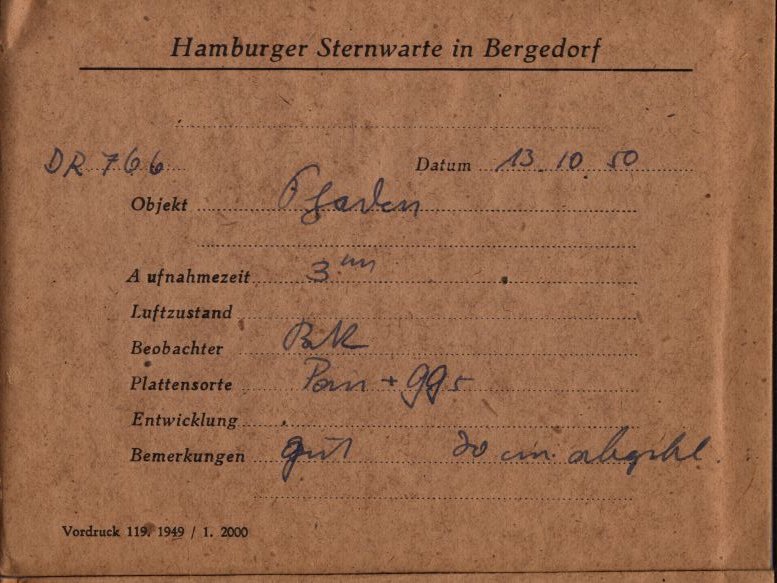 Hamburger Sternwarte in Bergedorf
DR 766 Datum 13. 10. 50
Objekt
Aufnahmezeit 3 m
Luftzustand
Beobachter
Plattensorte + GG5
Entwicklung
Bemerkungen gut 20 cm
Vordruck 119. 1949 / 1. 2000